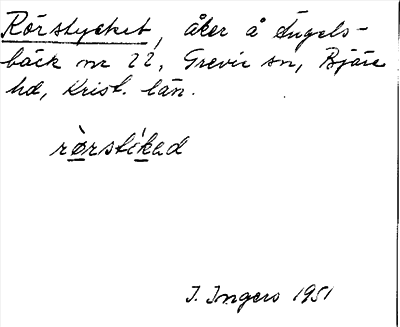 Rörstycket, åker å Ängels-
bäck nr 22, Grevie sn, Bjäre
hd, Krist. län.
rö̀rstíked
I. Ingers 1951